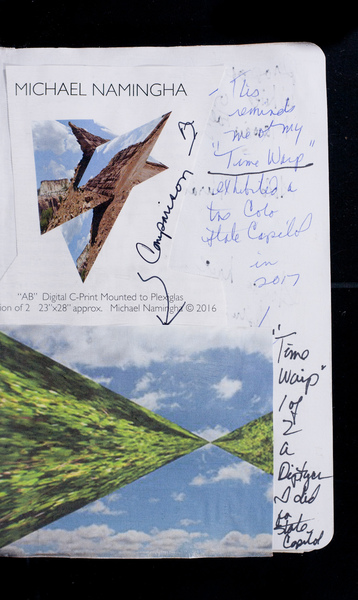 MICHAEL NAMINGHA
"AB" Digital C-Print Mounted to Plexiglas
ion of 2 23"x28" approx. Michael Namingha © 2016
Comparison
This
reminds
me of my
"Time Warp"
exhibited a
the Colo
State Capitol
in
2017
"Time
Warp"
1 of
2
a
Diptych
I did
to
State
Capitol